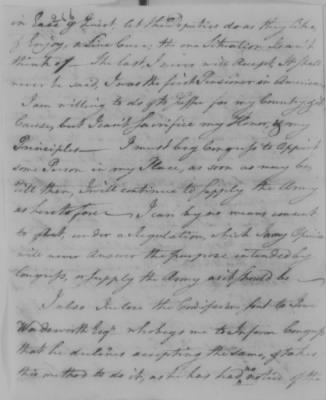 in Ease & Quiet, let the Deputies do as they like,
& Enjoy, a Sine Cure; the one Situation I can't
think of The last, I never will Accept. It shall
never be said, I was the first Pensioner in America
I am willing to do & to Suffer for my Country & its
Cause, but I can't Sacrifice my Honor, & my
Principles— I must beg Congress to Appoint
some Person in my Place, as soon as may be;
till then, I will continue to Supply the Army
as heretofore—I can by no means consent
to Act, under a Regulation, which in my Opinion
will never Answer the purpose intended by
Congress, or Supply the Army as it should be—
I also Inclose the Commission, sent to
Wadsworth Esqr. who begs me to Inform Congress
that he declines accepting the same, & takes
this method to do it, as he has had no notice of the